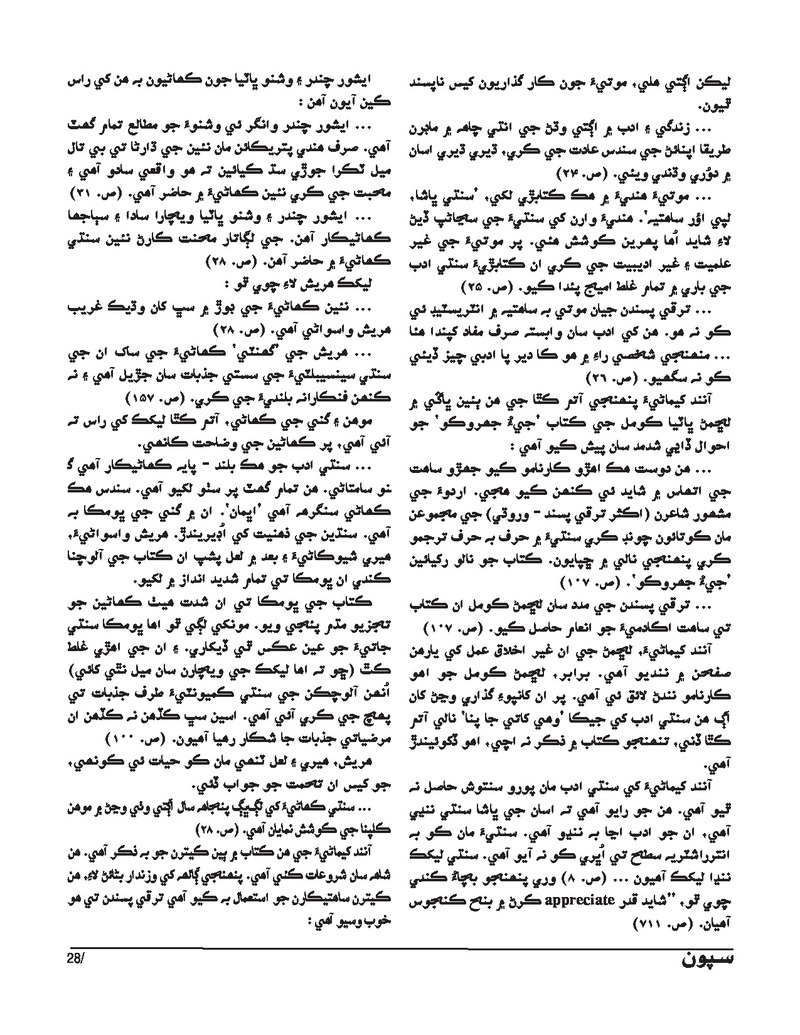 ليڪن اڳتي هلي، موتيءَ جون ڪار گذاريون کيس ناپسند
ٿيون.
... زندگي ۽ ادب ۾ اڳتي وڌڻ جي انڌي چاهہ ۾ ماڊرن
طريقا اپنائڻ جي سندس عادت جي ڪري، ڏيري ڏيري اسان
۾ دوُري وڌندي ويئي. (ص. ۲۴)
... موتيءَ هنديءَ ۾ هڪ ڪتابڙي لکي، ’سنڌي ڀاشا،
لپي اؤر ساهتيہ‘. هنديءَ وارن کي سنڌيءَ جي سڃاڻپ ڏيڻ
لاءِ شايد اُها پهرين ڪوشش هئي. پر موتيءَ جي غير
علميت ۽ غير اديبيت جي ڪري ان ڪتابڙيءَ سنڌي ادب
جي باري ۾ تمام غلط اميج پئدا ڪيو. (ص. ۲۵)
... ترقي پسندن جيان موتي بہ ساهتيہ ۾ انٽريسٽيڊ ئي
ڪو نہ هو. هن کي ادب سان وابستہ صرف مفاد کپندا هئا
... منهنجي شخصي راءِ ۾ هو ڪا دير پا ادبي چيز ڏيئي
ڪو نہ سگهيو. (ص. ۲۶)
آنند کيماڻيءَ پنهنجي آتم ڪٿا جي هن ٻئين ڀاڱي ۾
لڇمڻ ڀاٽيا ڪومل جي ڪتاب ’جيءُ جهروڪو‘ جو
احوال ڏاڍي شدمد سان پيش ڪيو آهي :
... هن دوست هڪ اهڙو ڪارنامو ڪيو جهڙو ساهت
جي اتهاس ۾ شايد ئي ڪنهن ڪيو هجي. اردوءَ جي
مشهور شاعرن (اڪثر ترقي پسند - وروڌي) جي مجموعن
مان ڪوتائون چونڊ ڪري سنڌيءَ ۾ حرف بہ حرف ترجمو
ڪري پنهنجي نالي ۾ ڇپايون. ڪتاب جو نالو رکيائين
’جيءُ جهروڪو‘. (ص. ۱۰۷)
... ترقي پسندن جي مدد سان لڇمڻ ڪومل ان ڪتاب
تي ساهت اڪادميءَ جو انعام حاصل ڪيو. (ص. ۱۰۷)
آنند کيماڻيءَ، لڇمڻ جي ان غير اخلاق عمل کي يارهن
صفحن ۾ ننديو آهي. برابر، لڇمڻ ڪومل جو اهو
ڪارنامو نندڻ لائق ئي آهي. پر ان کانپوءِ گذاري وڃڻ کان
اڳ هن سنڌي ادب کي جيڪا ’وهي کاتي جا پنا‘ نالي آتم
ڪٿا ڏني، تنهنجو ڪتاب ۾ ذڪر نہ اچي، اهو ڏکوئيندڙ
آهي.
آنند کيماڻيءَ کي سنڌي ادب مان پورو سنتوش حاصل نہ
ٿيو آهي. هن جو رايو آهي تہ اسان جي ڀاشا سنڌي ننڍي
آهي، ان جو ادب اڃا بہ ننڍو آهي. سنڌيءَ مان ڪو بہ
انترراشٽريہ سطح تي اُڀري ڪو نہ آيو آهي. سنڌي ليکڪ
ننڍا ليکڪ آهيون ... (ص. ۸) وري پنهنجو بچاءُ ڪندي
چوي ٿو، ”شايد قدر appreciate ڪرڻ ۾ بنھ ڪنجوس
آهيان. (ص. ۷۱۱)
ايشور چندر ۽ وشنو ڀاٽيا جون ڪهاڻيون بہ هن کي راس
ڪين آيون آهن :
... ايشور چندر وانگر ئي وشنوءَ جو مطالع تمام گهٽ
آهي. صرف هندي پتريڪائن مان نئين جي ڌارڻا تي بي تال
ميل ٽڪرا جوڙي سڌ ڪيائين تہ هو واقعي سادو آهي ۽
محبت جي ڪري نئين ڪهاڻيءَ ۾ حاضر آهي. (ص. ۳۱)
... ايشور چندر ۽ وشنو ڀاٽيا ويچارا سادا ۽ سٻاجها
ڪهاڻيڪار آهن. جي لڳاتار محنت ڪارڻ نئين سنڌي
ڪهاڻيءَ ۾ حاضر آهن. (ص. ۲۸)
ليکڪ هريش لاءِ چوي ٿو :
... نئين ڪهاڻيءَ جي ٻوڙ ۾ سڀ کان وڌيڪ غريب
هريش واسواڻي آهي. (ص. ۲۸)
... هريش جي ’گهنٽي‘ ڪهاڻيءَ جي ساک ان جي
سنڌي سينسيبلٽيءَ جي سستي جذبات سان جڙيل آهي ۽ نہ
ڪنهن فنڪارانہ بلنديءَ جي ڪري. (ص. ۱۵۷)
موهن ۽ گني جي ڪهاڻي، آتم ڪٿا ليکڪ کي راس تہ
آئي آهي، پر ڪهاڻين جي وضاحت ڪانهي.
... سنڌي ادب جو هڪ بلند - پايہ ڪهاڻيڪار آهي گ
نو سامتاڻي. هن تمام گهٽ پر سٺو لکيو آهي. سندس هڪ
ڪهاڻي سنگرهہ آهي ’اڀمان‘. ان ۾ گني جي ڀومڪا بہ
آهي. سنڌين جي ذهنيت کي اُڊيريندڙ. هريش واسواڻيءَ،
هيري شيوڪاڻيءَ ۽ بعد ۾ لعل پشپ ان ڪتاب جي آلوچنا
ڪندي ان ڀومڪا تي تمام شديد انداز ۾ لکيو.
ڪتاب جي ڀومڪا تي ان شدت هيٺ ڪهاڻين جو
تجزيو مڌم پئجي ويو. مونکي لڳي ٿو اها ڀومڪا سنڌي
جاتيءَ جو عين عڪس ٿي ڏيکاري. ۽ ان جي اهڙي غلط
ڪٿ (ڇو تہ اها ليکڪ جي ويچارن سان ميل نٿي کائي)
اُنهن آلوچڪن جي سنڌي ڪميونٽيءَ طرف جذبات تي
پهچ جي ڪري آئي آهي. اسين سڀ ڪڏهن نہ ڪڏهن ان
مرضياتي جذبات جا شڪار رهيا آهيون. (ص. ۱۰۰)
هريش، هيري ۽ لعل ٽنهي مان ڪو حيات ئي ڪونهي،
جو کيس ان تهمت جو جواب ڏئي.
... سنڌي ڪهاڻيءَ کي لڳ ڀڳ پنجاهہ سال اڳتي وٺي وڃڻ ۾ موهن
ڪلپنا جي ڪوشش نمايان آهي. (ص. ۲۸)
آنند کيماڻيءَ جي هن ڪتاب ۾ ٻين ڪيترن جو بہ ذڪر آهي. هن
شاهہ سان شروعات ڪئي آهي. پنهنجي ڳالهہ کي وزندار بڻائڻ لاءِ، هن
ڪيترن ساهتيڪارن جو استعمال بہ ڪيو آهي ترقي پسندن تي هو
خوب وسيو آهي :
سپون
28/